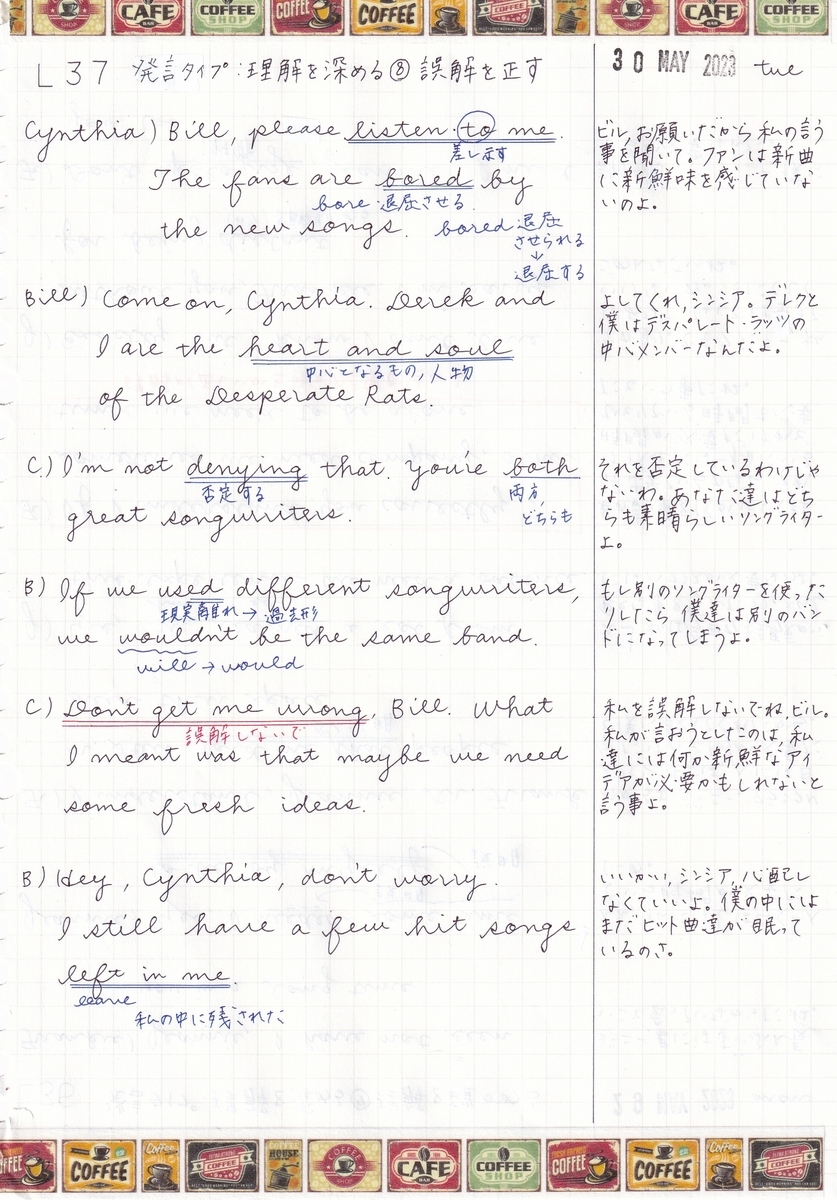 L37 発言タイプ:理解を深める⑧ 誤解を正す
30 MAY 2023 tue
Cynthia) Bill, please listen to me.
差し示す
The fans are bored by
bore 退屈させる
the new songs.
bored 退屈
させられる
↓
退屈する
ビル,お願いだから私の言う
事を聞いて。ファンは新曲
に新鮮味を感じていな
いのよ。
Bill) Come on, Cynthia. Derek and
I are the heart and soul
中心となるもの,人物
of the Desperate Rats.
よしてくれ,シンシア。デレクと
僕はデスパレート・ラッツの
中心メンバーなんだよ。
C.) I'm not denying that. You're both
否定する
両方,
どちらも
great songwriters.
それを否定しているわけじゃ
ないわ。あなた達はどち
らも素晴らしいソングライター
よ。
B) If we used different songwriters,
現実離れ→過去形
we wouldn't be the same band.
will → would
もし別のソングライターを使った
りしたら 僕達は別のバン
ドになってしまうよ。
C) Don't get me wrong, Bill. What
誤解しないで
I meant was that maybe we need
some fresh ideas.
私を誤解しないでね,ビル。
私が言おうとしたのは,私
達には何か新鮮なアイ
デアが必要かもしれないと
言う事よ。
B) Hey, Cynthia, don't worry.
I still have a few hit songs
left in me.
leave
私の中に残された
いいかい,シンシア,心配し
なくていいよ。僕の中には
まだヒット曲達が眠って
いるのさ。